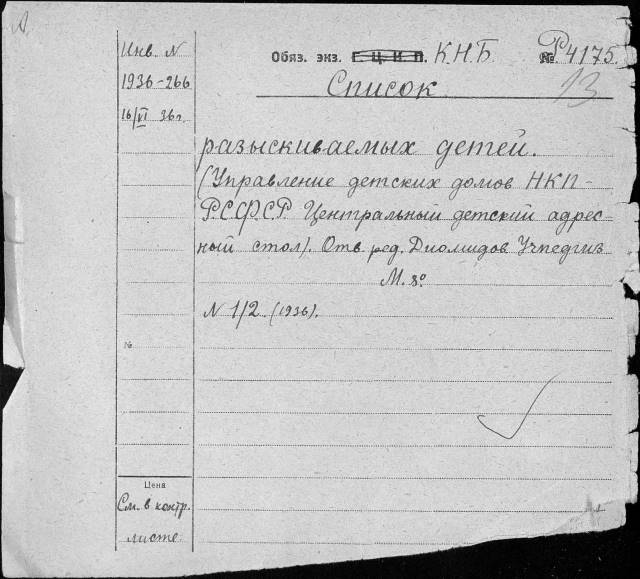 Инв. N
1936-266
16/VI 36г.
Обяз. экз. Г. Ц. И. П. К.Н.Б. № Р4175
13
Список
разыскиваемых детей.
(Управление детских домов НКП-
Р.С.Ф.С.Р. Центральный детский адрес-
ный стол). Отв. ред. Диомидов Учпедгиз
М. 8º
N 1/2 (1936).
№
Цена
См. в контр.
листе